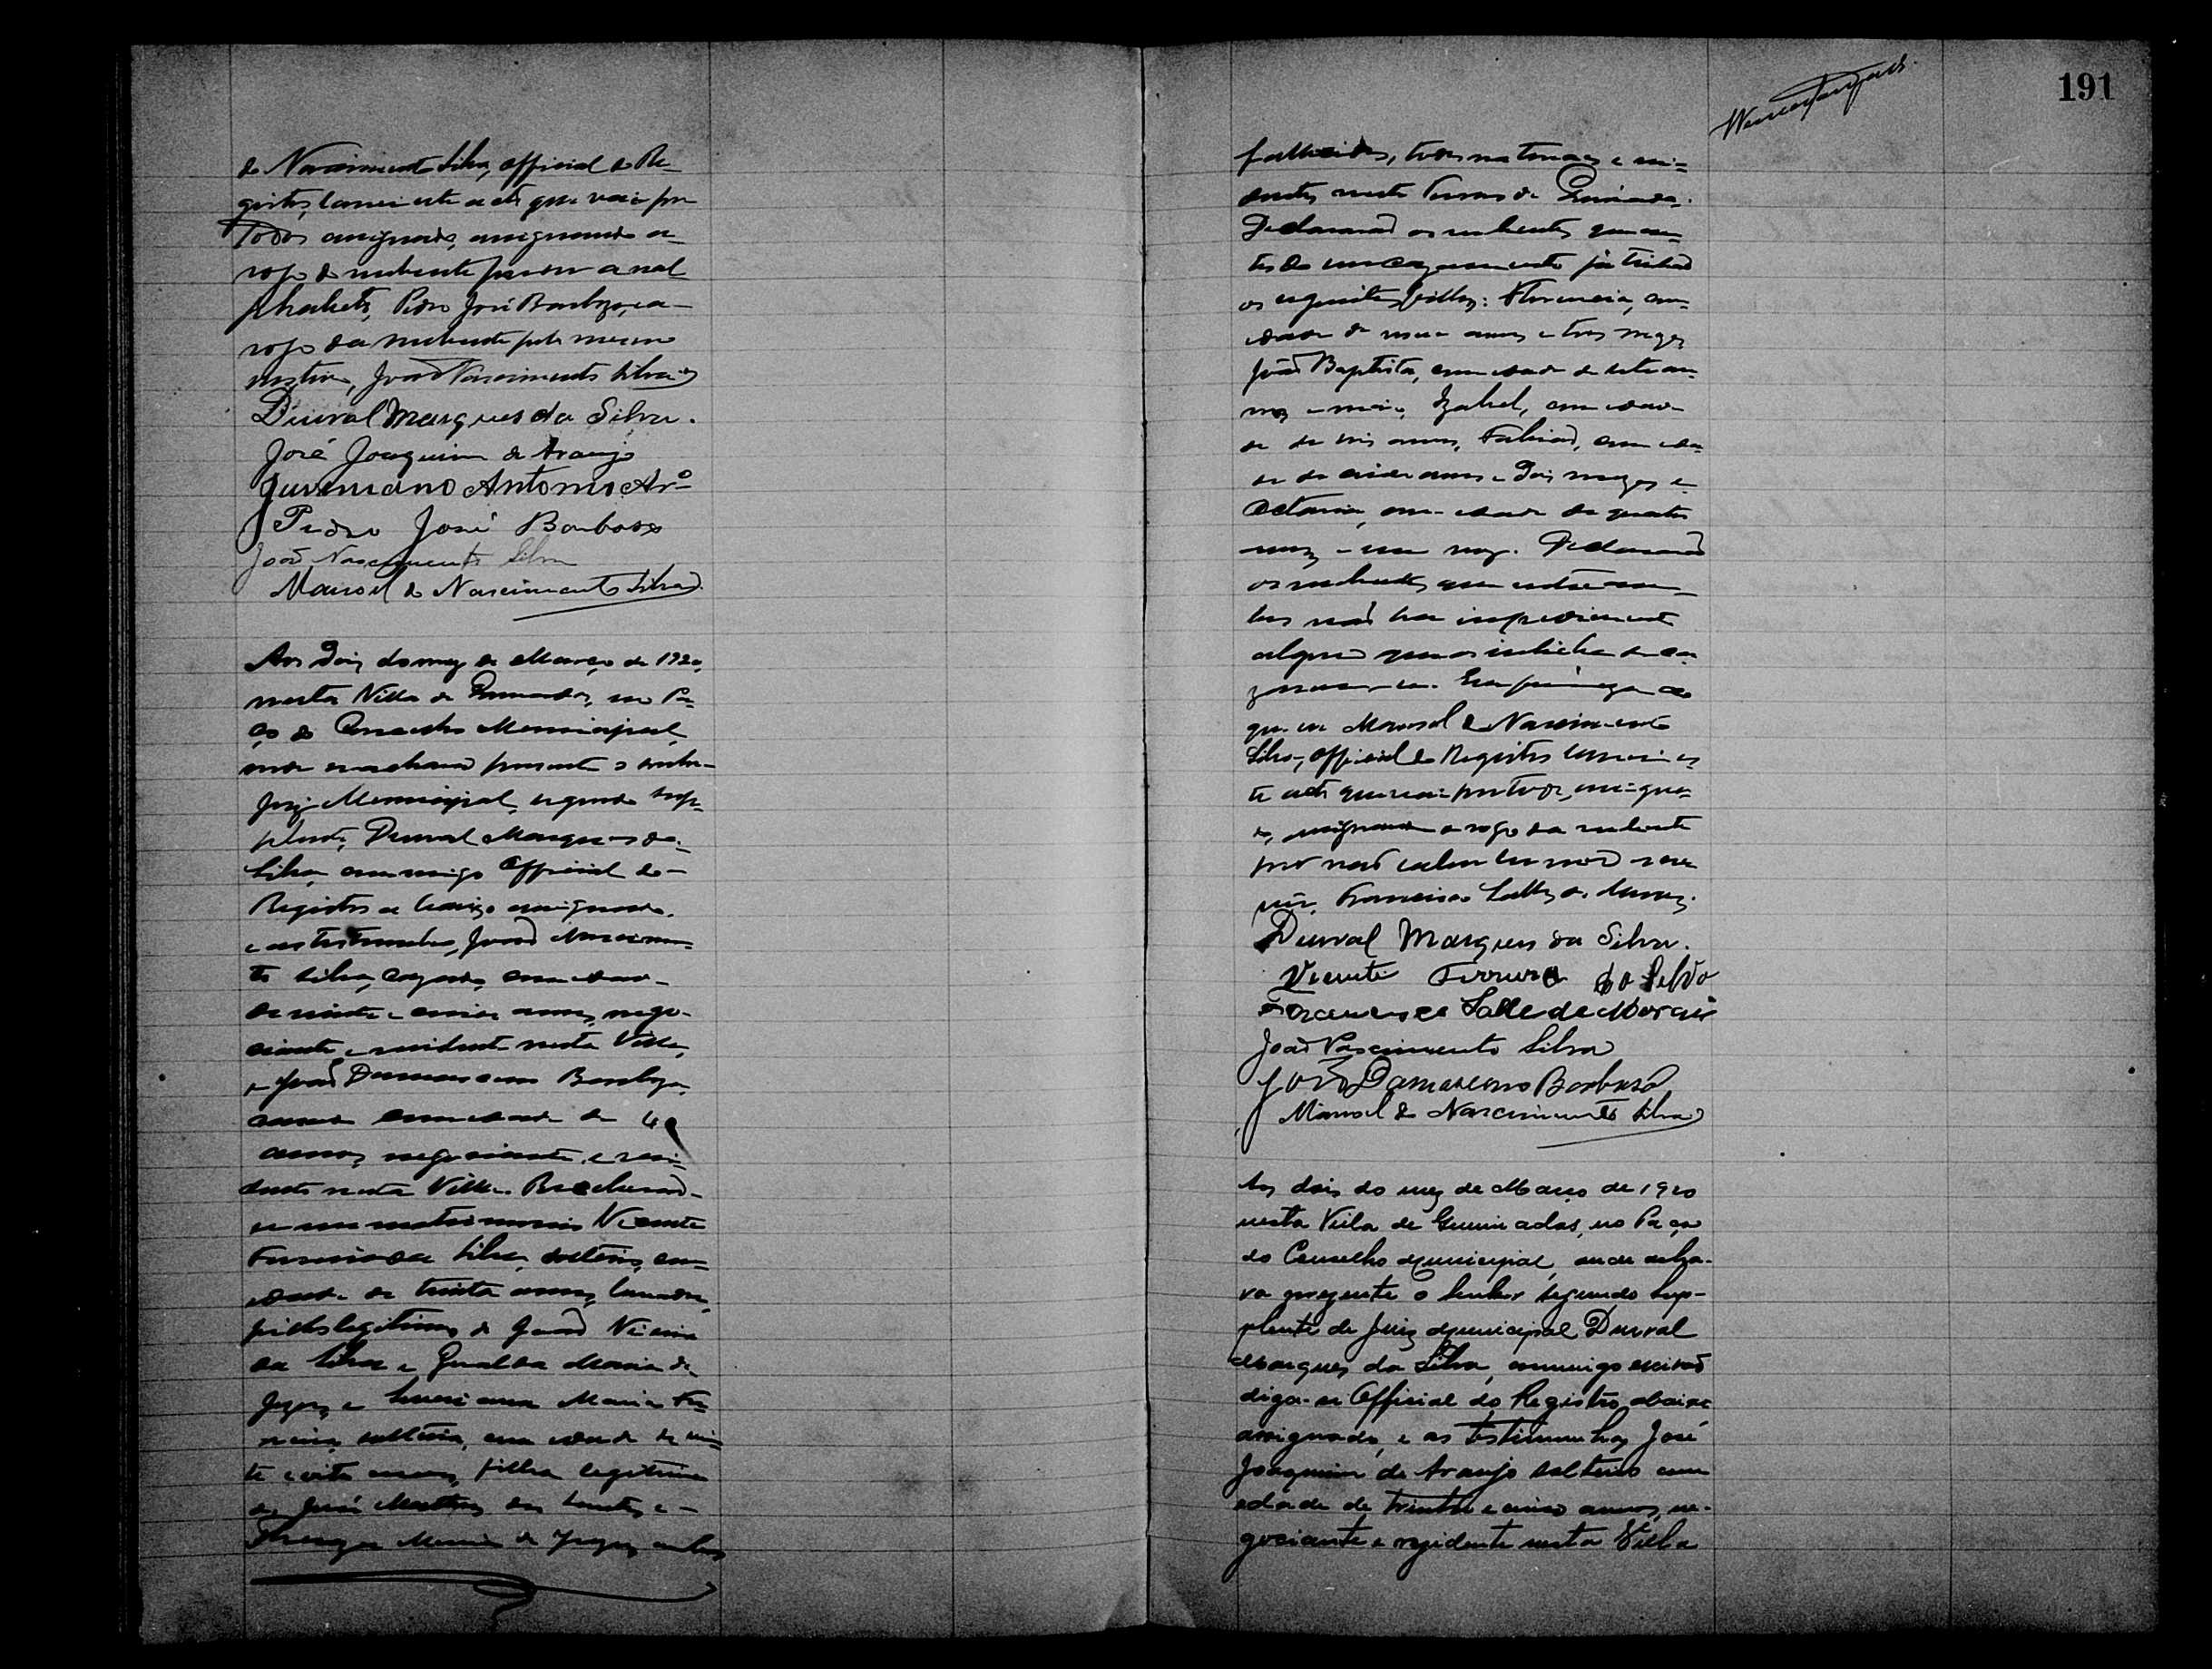 do Nascimento Silva, official do Re-
gistro, lavrei este acto que vai por
todos assignado, assignando a
rogo do nubente por ser anal
phabeto, Pedro José Barboza, e a
rogo da nubente pelo mesmo
motivo, João Nascimento Silva.
Durval Marques da Silva.
José Joaquim de Araujo
Juveniano Antonio Arº
Pedro José Barbosa
João Nascimento Silva
Manoel do Nascimento Silva.
Aos dois do mez de Março de 1920,
nesta Villa de Queimadas, no Pa-
ço do Conselho Municipal,
onde se achava presente o senhor
Juiz Municipal, segundo sup-
plente, Durval Marques da
Silva, commigo Official do
Registro abaixo assignado.
e as testemunhas, João Nascimen-
to Silva, cazado, com edade
de vinte e cinco annos, nego-
ciante e residente nesta Villa,
e João Damasceno Barboza,
com edade de 40
annos, negociante, e resi-
dente nesta Villa. Receberam-
se em matrimonio Vicente
Ferreira da Silva, solteiro, com
edade de trinta annos, lavrador,
filho legitimo de João Vieira
da Silva e Geralda Maria de
Jezus, e Maria Fer-
reira, solteira, com edade de vin-
te e oito annos, filha legitima
de José Martins dos Santos e
Thereza Maria de Jezus, ambos
191
fallecidos, todos naturaes e resi-
dentes neste Termo de Queimadas.
Declararaõ os nubentes que an-
tes do seu cazamento já tinhaõ
os seguintes filhos: Florencia, com
edade de nove annos e tres mezes,
João Baptista, com edade de sete an-
nos e meio, Izabel, com edade
de seis annos, Fabiaõ, com eda-
de de cinco annos e dois mezes e
Octavia, com edade de quatro
annos e um mez. Declararaõ
os nubentes que entre am-
bos naõ ha impedimento
algum que os inhiba de ca-
zarem-se. Em firmeza do
que eu Manoel do Nascimento
Silva, official do Registro lavrei es-
te acto que vai por todos assigna-
do, assignando a rogo da nubente
por naõ saber ler nem escre-
ver, Francisco Salles de Moraes.
Durval Marques da Silva.
Vicente Ferrera da Selva
Francisco Salle de Morais
João Nascimento Silva
João Damaceno Barbosa
Manoel do Nascimento Silva
Aos dois do mez de Março de 1920
nesta Villa de Queimadas, no Paço
do Conselho Municipal, onde acha-
va prezente o Senhor segundo Sup-
plente de Juiz Municipal Durval
Marques da Silva, commigo escrivaõ
digo-se Official do Registro abaixo
assignado, e as testimunhas José
Joaquim de Araujo solteiro com
edade de trinta e cinco annos, ne-
gociante e rezidente nesta Villa